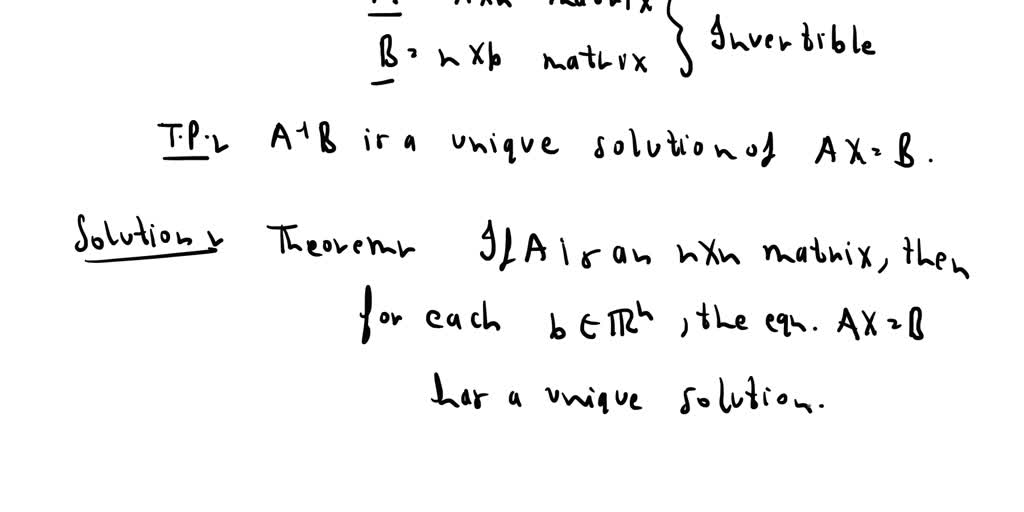 B = n×p matrix } Invertible
T.P.: A⁻¹B is a unique solution of AX = B.
Solution: Theorem: If A is an n×n matrix, then
for each b ∈ ℝⁿ, the eqn. AX = B
has a unique solution.